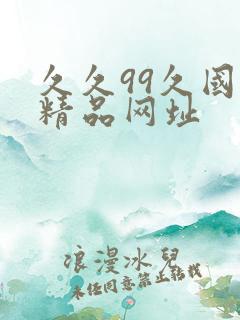 久久99久國
精品网址
浪漫冰兒
未经同意禁止转载